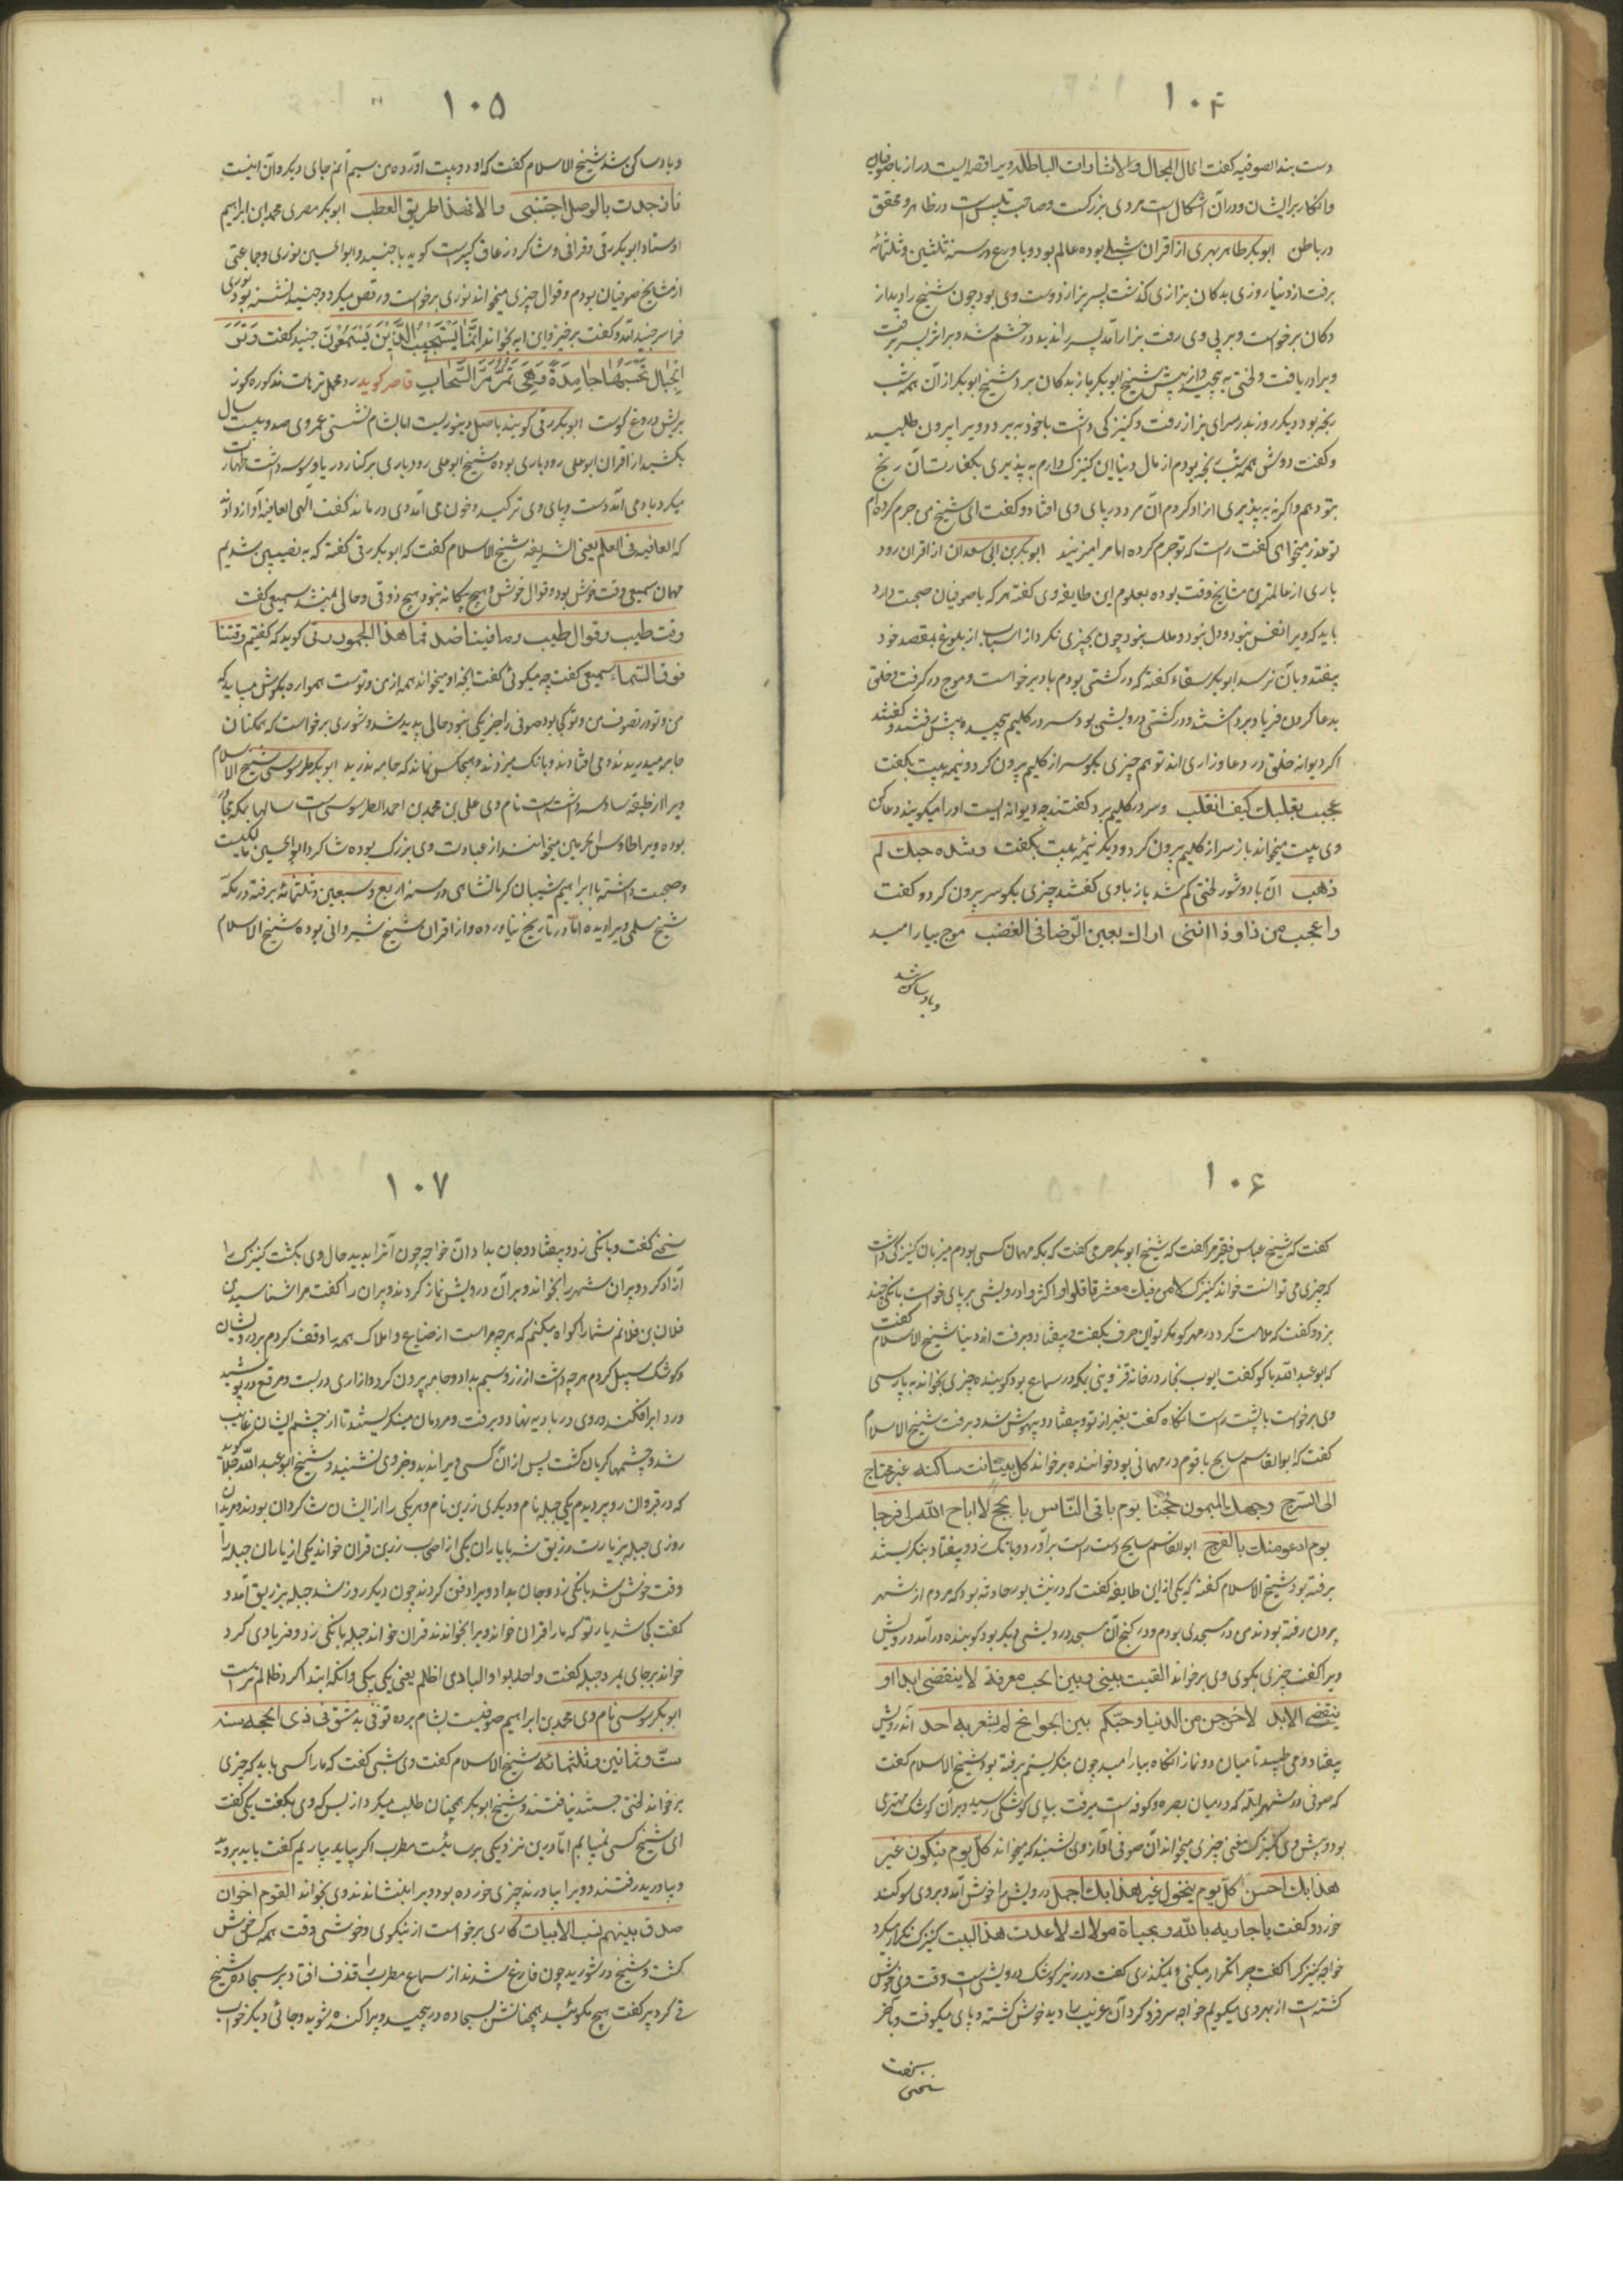 ۱۰۴
دست بند الصوفیه گفت اعمال المجال والاشارات الباطله ویرا قصه ایست دراز با صوفیان
و انکار بر ایشان و در آن اشکال است مردی بزرگست و صاحب تلبیس است در ظاهر و محقق
در باطن ابوبکر طاهر ابهری از اقران شبلی بوده عالم بود و با ورع در سنه ثلثین و ثلثمائه
برفت از دنیا روزی بدکان بزازی گذشت پسر بزاز دوست وی بود چون شیخ را دید از
دکان برخواست و بر پی وی رفت بزاز آمد پسر را ندید در خشم شد و بر اثر پسر برفت
ویرا دریافت و لختی به پیچید و از پیش شیخ ابوبکر باز بدکان برد شیخ ابوبکر از آن همه شب
رنجه بود دیگر روز بدر سرای بزاز رفت و کنیزکی داشت با خود ببرد و ویرا بیرون طلبید
و گفت دوش همه شب رنجه بودم از مال دنیا این کنیزک دارم به پذیری بکفارت آن رنج
بتو دهم و اگر نه پذیری ازاد کردم آن مرد در پای وی افتاد و گفت ای شیخ من جرم کرده ام
تو عذر میخواهی گفت راست که تو جرم کرده اما مرا میزنند ابوبکر بن ابی سعدان از اقران رود
باری از عالمترین مشایخ وقت بوده بعلوم این طایفه وی گفته هر که با صوفیان صحبت دارد
باید که ویرا نفس نبود و دل نبود و ملک نبود چون بچیزی نگرد از اسباب از بلوغ بمقصد خود
بیفتد و بآن نرسد ابوبکر سقاء گفته که در کشتی بودم باد برخواست و موج در گرفت و خلق
بدعا کردن فریاد برداشتند و در کشتی درویشی بود سر در گلیم پیچیده پیش رفتند و گفتند
اگر دیوانه خلق در دعا و زاری اند تو هم چیزی بگو سر از گلیم بیرون کرد و نیمه بیت بگفت
عجبت بقلبک کیف انقلب و سر در گلیم برد گفتند چه دیوانه ایست او را میگویند دعا کن
وی بیت میخواند باز سر از گلیم بیرون کرد و دیگر نیمه بیت بگفت و شده حبک لم
ذهب آن باد و شور لختی کم شد باز باوی گفتند چیزی بگو سر بیرون کرد و گفت
و اعجب من ذا و ذا اننی اراک بعین الرضا فی الغضب موج بیارامید
و باد ساکن شد
۱۰۵
و باد ساکن شد شیخ الاسلام گفت که او دو بیت آورده من سیم آنم جای دیگر و آن اینست
فان جدت بالوصل اجتنبی والا فهذا طریق العطب ابوبکر مصری محمد ابن ابراهیم
اوستاد ابوبکر رقی و قرانی و شاگرد زعاق کبیر است گوید با جنید و ابوالحسین نوری و جماعتی
از مشایخ صوفیان بودم و قوال چیزی میخواند نوری برخواست و رقص میکرد و جنید نشسته بود نوری
فرا سر جنید آمد و گفت برخیز و این ایه بخواند انما یستجیب الذین یسمعون جنید گفت و تری
الجبال تحسبها جامدة و هی تمر مر السحاب قاصر گوید رد محل ترهات مذکوره کوز
بریش دروغ گوست ابوبکر رقی گویند باصل دینوریست اما بشام نشستی عمر وی صد و بیست سال
بکشید از اقران ابوعلی رودباری بوده شیخ ابوعلی رودباری بر کنار دریا وسوسه داشت طهارت
میکرد بادمی آمد دست و پای وی ترکید و خون می آمد وی درماند گفت الهی العافیه آواز داد
که العافیه فی العلم یعنی الشریفه شیخ الاسلام گفت که ابوبکر رقی گفته که به نصیبین شدیم
مهمان سمیعی وقت خوش بود و قوال خوش و هیچ بیگانه نبود و هیچ ذوقی و حالی نمیشد سمیعی گفت
وقت طیب و قوال طیب و ما فینا ضد فما هذا الجمود رقی گوید که گفتم وقتنا
فوق السماء سمیعی گفت چه میگوئی گفت آنچه او میخواند همه از من و توست همواره بگوش میباید که
من و تو در تصوف من و تو کی بود صوفی را جز یکی نبود حالی پدید شد و شوری برخواست که همگنان
جامه میدریدند و می افتادند و بانگ میزدند و هیچکس نماند که جامه ندرید ابوبکر طرسوسی شیخ الاسلام
ویرا از طبقه سادسه داشت است نام وی علی بن محمد بن احمد الطرسوسی است سالها بمکه مجاور
بوده ویرا طاوس الحرمین میخوانند از عبادت وی بزرگ بوده شاگرد ابوالحسین مالکیست
و صحبت داشته با ابراهیم شیبان کرمانشاهی در سنه اربع و سبعین و ثلثمائه برفته در مکه
شیخ سلمی ویرا دیده اما در تاریخ نیاورده و از اقران شیخ شیروانی بوده شیخ الاسلام
۱۰۶
گفت که شیخ عباس فقیر مرا گفت که شیخ ابوبکر حرمی گفت که بمکه مهمان کسی بودم میزبان کنیزکی داشت
که چیزی می توانست خواند کنیزک لامن فیک معشر قاقلوا و اکثروا درویشی بر پای خواست بانکی چند
بزد و گفت که ملامت کرد در مهر کو مگر تو این حرف بگفت و بیفتاد و برفت از دنیا شیخ الاسلام گفت
که ابو عبدالله باکو گفت ایوب نجار در خانه قزوینی بمکه در سماع بود گوینده چیزی بخواند به پارسی
وی برخواست با پشت راست انگاه گفت بغیر از تو و بیفتاد و بیهوش شد و برفت شیخ الاسلام
گفت که ابوالقاسم سایح با قوم در مهمانی بود خواننده برخواند کل بیت انت ساکنه غیر محتاج
الی السرج وجهک المیمون حجتنا یوم یاتی الناس بالحجج لا اباح الله لی فرجا
یوم ادعو منک بالفرج ابوالقاسم سایح دست راست برآورد و بانک زد و بیفتاد بنگریستند
برفته بود شیخ الاسلام گفته که یکی از این طایفه گفت که در نیشابور حادثه بود که مردم از شهر
بیرون رفته بودند من در مسجدی بودم و در کنج آن مسجد درویشی دیگر بود گوینده درآمد درویش
ویرا گفت چیزی بگوی وی برخواند القیت بینی و بین الحب معرفة لا ینقضی ابدا او
ینقضی الابد لاخرجن من الدنیا و حبکم بین الجوانح لم یشعر به احد آن درویش
بیفتاد و می طپید تا میان دو نماز انگاه بیارامید چون بنگریستم برفته بود شیخ الاسلام گفت
که صوفی در شهر ابله که در میان بصره و کوفه است میرفت بپای کوشکی رسید و بر آن کوشک مهتری
بود و پیش وی کنیزک مغنی چیزی میخواند آن صوفی آواز وی بشنید که میخواند کل یوم یتکون غیر
هذا بک احسن کل یوم یتحول غیر هذا بک اجمل درویش را خوش آمد و بروی سوگند
خورد و گفت یا جاریه بالله و بحیاة مولاک لا عدت هذا البیت کنیزک تکرار میکرد
خواجه کنیزک را گفت چرا تکرار میکنی و نمیگذری گفت در زیر کوشک درویشی است وقت وی خوش
گشته است از بهر وی میگویم خواجه سر فرو کرد آن غریب را دید خوش گشته و پای میکوفت و بآخر
سخنی
۱۰۷
سخنی گفت و بانکی زد و بیفتاد و جان بداد آن خواجه چون آنرا بدید حال وی بگشت کنیزک را
آزاد کرد و پیران شهر را بخواند و بر آن درویش نماز کردند و پیران را گفت مرا شناسید من
فلان بن فلانم شما را گواه میکنم که هر چه مراست از ضیاع و املاک همه را وقف کردم بر درویشان
و کوشک سبیل کردم هر چه داشت از زر و سیم بداد و جامه بیرون کرد و ازاری در بست و مرقع در پوشید
ورد ابرافکند و روی در بادیه نهاد و برفت و مردمان مینگریستند تا از چشم ایشان غایب
شد و چشمها گریان گشت پس از آن کسی ویرا ندید و خبر وی نشنید و شیخ ابو عبدالله جلا گوید
که در قیروان دو پیر دیدم یکی جبله نام و دیگری زریق نام و هر یکی را از ایشان شاگردان بودند و مریدان
روزی جبله بزیارت رزیق شد با یاران یکی از اصحاب زریق قران خواند یکی از یاران جبله را
وقت خوش شد بانگی زد و جان بداد ویرا دفن کردند چون دیگر روز شد جبله بزریق آمد و
گفت کی شد یار تو که ما را قران خواند ویرا بخواندند قران خواند جبله بانگی زد و فریادی کرد
خواند بر جای بمرد جبله گفت واحد بواحد والبادی اظلم یعنی یکی بیکی و آنکه ابتدا کرد ظالم تر است
ابوبکر سوسی نام وی محمد بن ابراهیم صوفیست بشام بوده توفی بدمشق فی ذی الحجه سنه
ست و ثمانین و ثلثمائه شیخ الاسلام گفت وی شبی گفت که ما را کسی باید که چیزی
برخواند لختی جستند نیافتند و شیخ ابوبکر همچنان طلب میکرد از بس که وی بگفت یکی گفت
ای شیخ کسی نمییابیم اما در این نزدیکی برنائیست مطرب اگر بباید بیاریم گفت باید بروید
و بیاورید رفتند و ویرا بیاوردند چیزی خورده بود ویرا بنشاندند وی بخواند القوم اخوان
صدق بینهم نسب الابیات کاری برخواست از نیکوی و خوشی وقت همه کس خوش
گشت و شیخ در شورید چون فارغ شدند از سماع مطرب را قذف افتاد بر سجاده شیخ
قی کرد پیر گفت هیچ مگوئید همچنانش بسجاده در پیچید و پراکنده شوید و جائی دیگر خواب